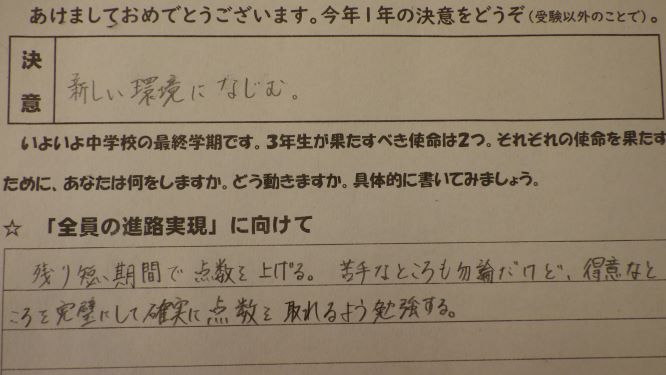 あけましておめでとうございます。今年1年の決意をどうぞ(受験以外のことで)。
決意
新しい環境になじむ。
いよいよ中学校の最終学期です。3年生が果たすべき使命は2つ。それぞれの使命を果たす
ために、あなたは何をしますか。どう動きますか。具体的に書いてみましょう。
☆ 「全員の進路実現」に向けて
残り短い期間で点数を上げる。苦手なところも勿論だけど、得意なと
ころを完璧にして確実に点数を取れるよう勉強する。